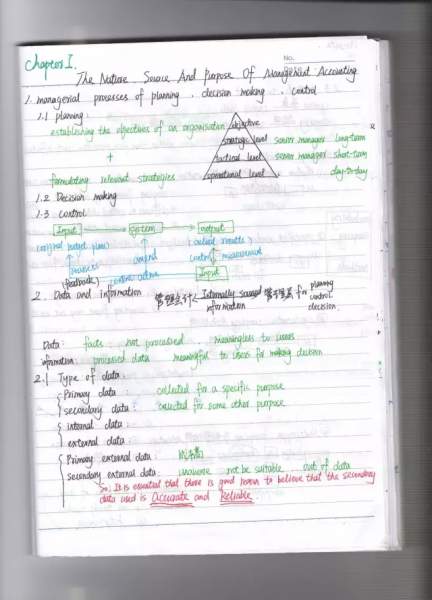 Chapter I.
No.
The Nature Source And Purpose Of Management Accounting
1. managerial processes of planning, decision making, control
1.1 planning:
establishing the objectives of an organisation
objective
strategic level senior manager long-term
+
tactical level senior manager short-term
formulating relevant strategies
operational level day-to-day
1.2 Decision making
1.3 control
Input → system → output
(original budget plan) (actual results)
control control measurement
(feedback) control action Input
2. Data and information
Internally sourced information
for planning
control
decision.
Data: facts, not processed, meaningless to users
information: processed data meaningful to users for making decision
2.1 Type of data:
Primary data: collected for a specific purpose
secondary data: collected for some other purpose
internal data:
external data:
Primary external data:
secondary external data: not be suitable out of data
So: It is essential that there is good reason to believe that the secondary
data used is Accurate and Reliable.